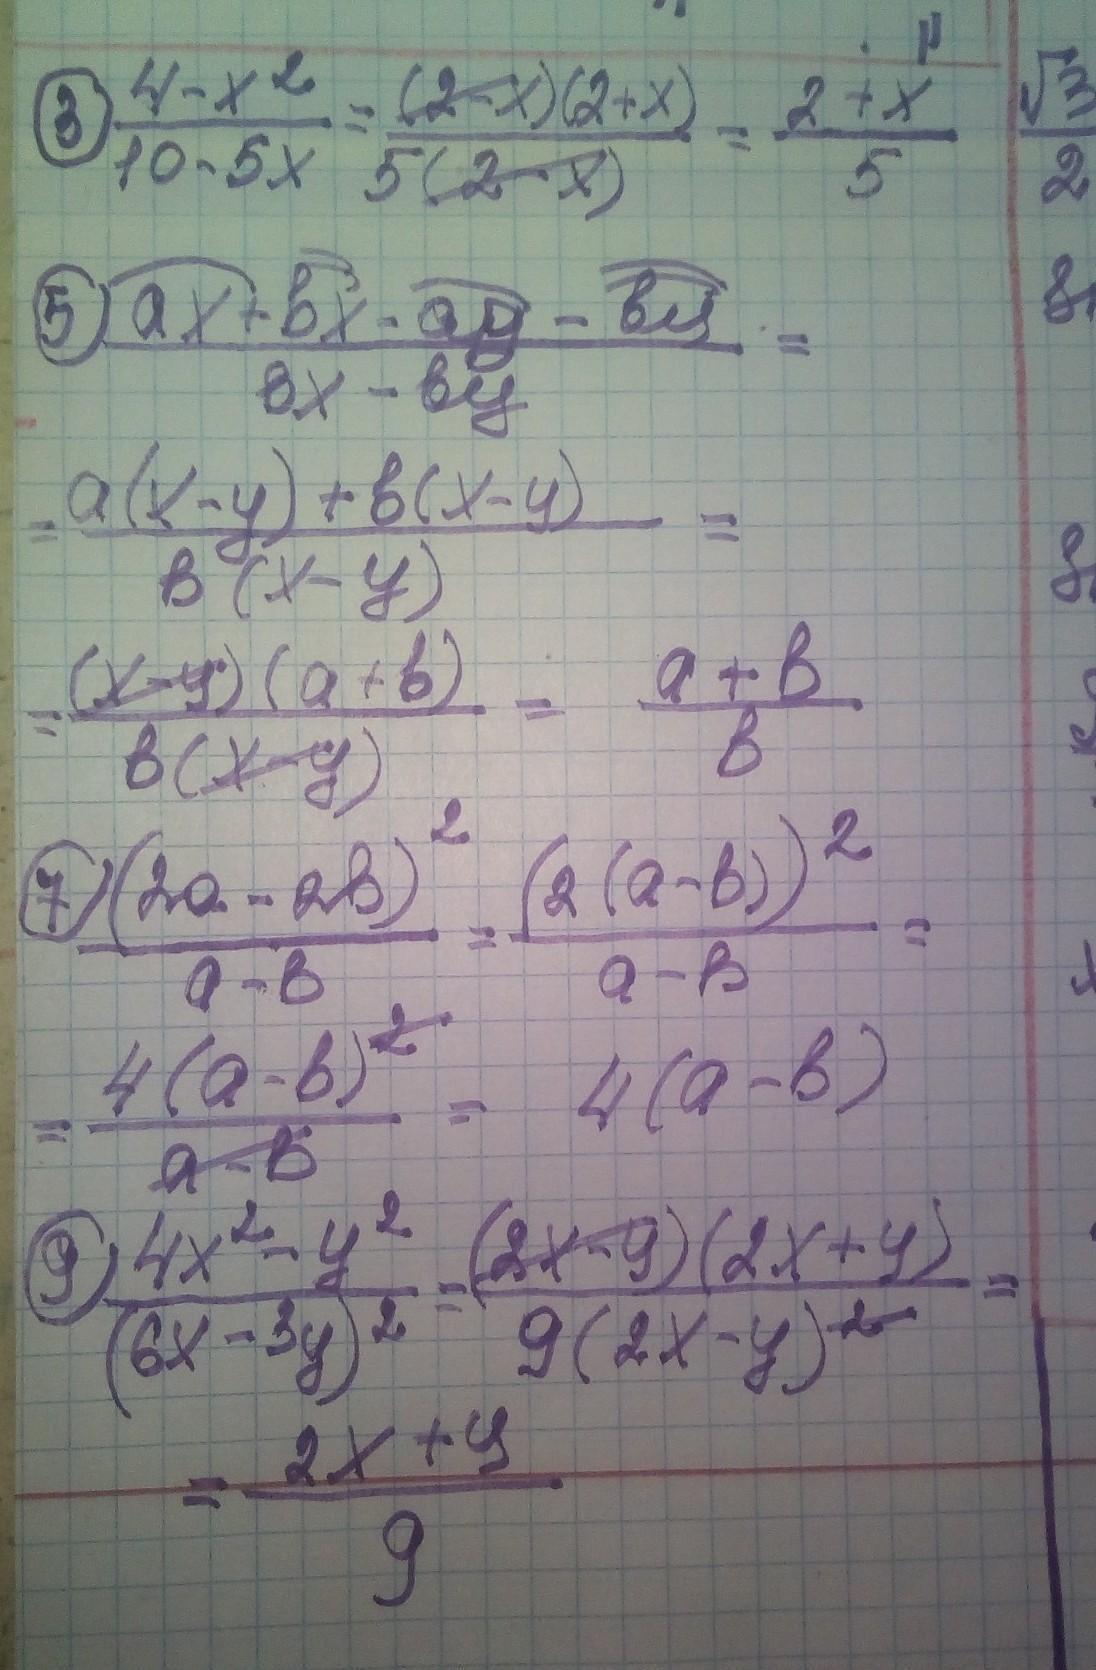 ③ (4-x²)/(10-5x) = ((2-x)(2+x))/(5(2-x)) = (2+x)/5
√3/2
⑤ (ax+bx-ay-by)/(bx-by) =
= (a(x-y)+b(x-y))/(b(x-y)) =
= ((x-y)(a+b))/(b(x-y)) = (a+b)/b
⑦ (2a-2b)²/(a-b) = (2(a-b))²/(a-b) =
= 4(a-b)²/(a-b) = 4(a-b)
⑨ (4x²-y²)/(6x-3y)² = ((2x-y)(2x+y))/(9(2x-y)²) =
= (2x+y)/9